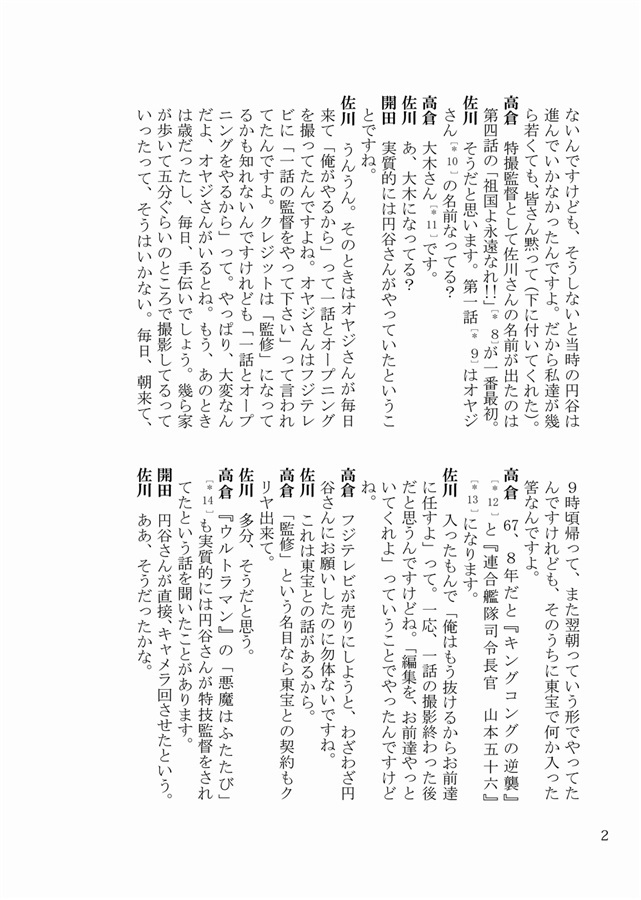 ないんですけども、そうしないと当時の円谷は
進んでいかなかったんですよ。だから私達が幾
ら若くても、皆さん黙って(下に付いてくれた)。
高倉　特撮監督として佐川さんの名前が出たのは
第四話の「祖国よ永遠なれ!!」[*8]が一番最初。
佐川　そうだと思います。第一話[*9]はオヤジ
さん[*10]の名前なってる?
高倉　大木さん[*11]です。
佐川　あ、大木になってる?
開田　実質的には円谷さんがやっていたというこ
とですね。
佐川　うんうん。そのときはオヤジさんが毎日
来て「俺がやるから」って一話とオープニング
を撮ってたんですよね。オヤジさんはフジテレ
ビに「一話の監督をやって下さい」って言われ
てたんですよ。クレジットは「監修」になって
るかも知れないんですけれども「一話とオープ
ニングをやるから」って。やっぱり、大変なん
だよ、オヤジさんがいるとね。もう、あのとき
は歳だったし、毎日、手伝いでしょう。幾ら家
が歩いて五分ぐらいのところで撮影してるって
いったって、そうはいかない。毎日、朝来て、
9時頃帰って、また翌朝っていう形でやってた
んですけれども、そのうちに東宝で何か入った
筈なんですよ。
高倉　67、8年だと『キングコングの逆襲』
[*12]と『連合艦隊司令長官　山本五十六』
[*13]になります。
佐川　入ったもんで「俺はもう抜けるからお前達
に任すよ」って。一応、一話の撮影終わった後
だと思うんですけどね。「編集を、お前達やっと
いてくれよ」っていうことでやったんですけど
ね。
高倉　フジテレビが売りにしようと、わざわざ円
谷さんにお願いしたのに勿体ないですね。
佐川　これは東宝との話があるから。
高倉　「監修」という名目なら東宝との契約もク
リヤ出来て。
佐川　多分、そうだと思う。
高倉　『ウルトラマン』の「悪魔はふたたび」
[*14]も実質的には円谷さんが特技監督をされ
てたという話を聞いたことがあります。
開田　円谷さんが直接、キャメラ回させたという。
佐川　ああ、そうだったかな。
2